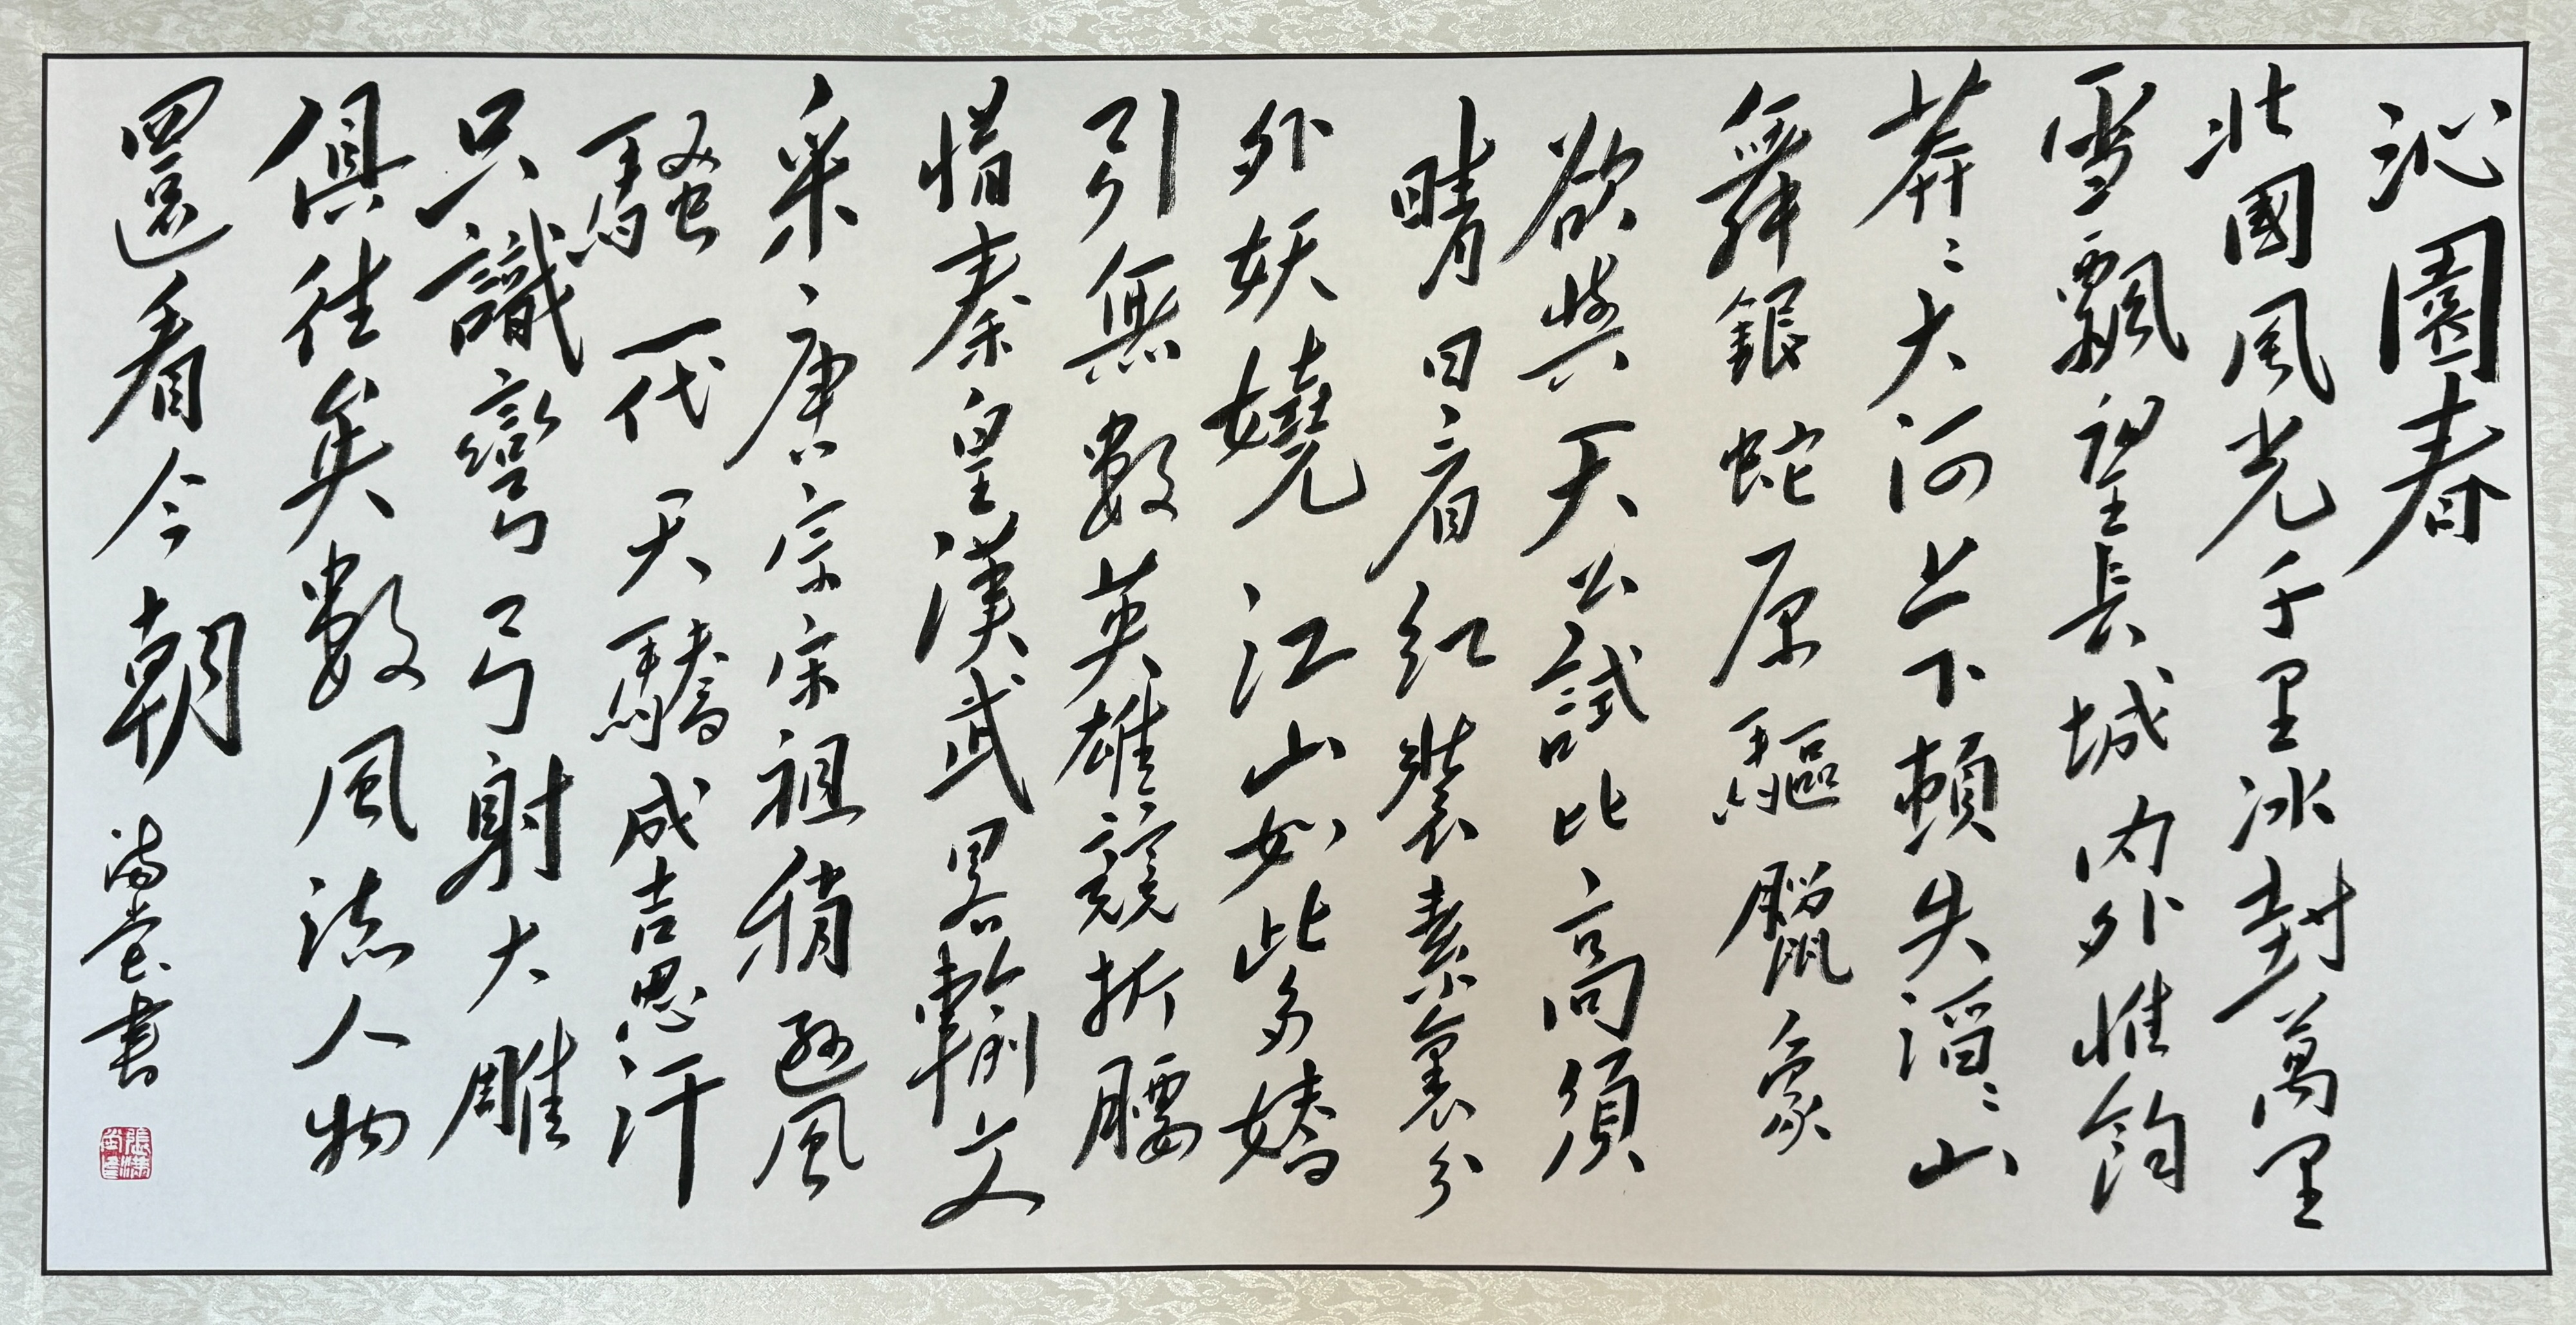 沁園春
北國風光千里冰封萬里
雪飄望長城内外惟餘
莽々大河上下頓失滔々山
舞銀蛇原驅臘象
欲與天公試比高須
晴日看紅裝素裹分
外妖嬈江山如此多嬌
引無數英雄競折腰
惜秦皇漢武畧輸文
采唐宗宋祖稍遜風
騷一代天驕成吉思汗
只識彎弓射大雕
俱往矣數風流人物
還看今朝
滿堂書